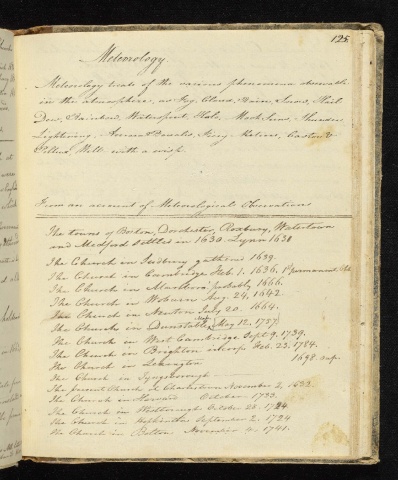 125
Meteorology
Meteorology treats of the various phenomena observable
in the atmosphere, as Fog, Cloud, Rain, Snow, Hail
Dew, Rainbow, Waterspout, Halo, Mock Suns, Thunder
Lightning, Aurora Borealis, Fiery Meteors, Castor &
Pollux, Will with a wisp.
From an account of Meteorological Observations
The towns of Boston, Dorchester, Roxbury, Watertown
and Medford settled in 1630. Lynn 1631
The Church in Sudbury gathered 1639.
The Church in Cambridge Feb. 1. 1636. 1st permanent
The Church in Marlboro' probably 1666.
The Church in Woburn Aug. 24, 1642
The Church in Newton July 20. 1664.
The Church in Dunstable May 12. 1757
The Church in West Cambridge Sept 9. 1739.
The Church in Brighton Feb. 23. 1784.
The Church in Lexington 1698
The Church in Tyngsborough
The present Church at Charlestown November 2, 1632.
The Church in Harvard October 1733.
The Church in Westborough October 28. 1724
The Church in Hopkinton September 2. 1724
The Church in Bolton November 4. 1741.